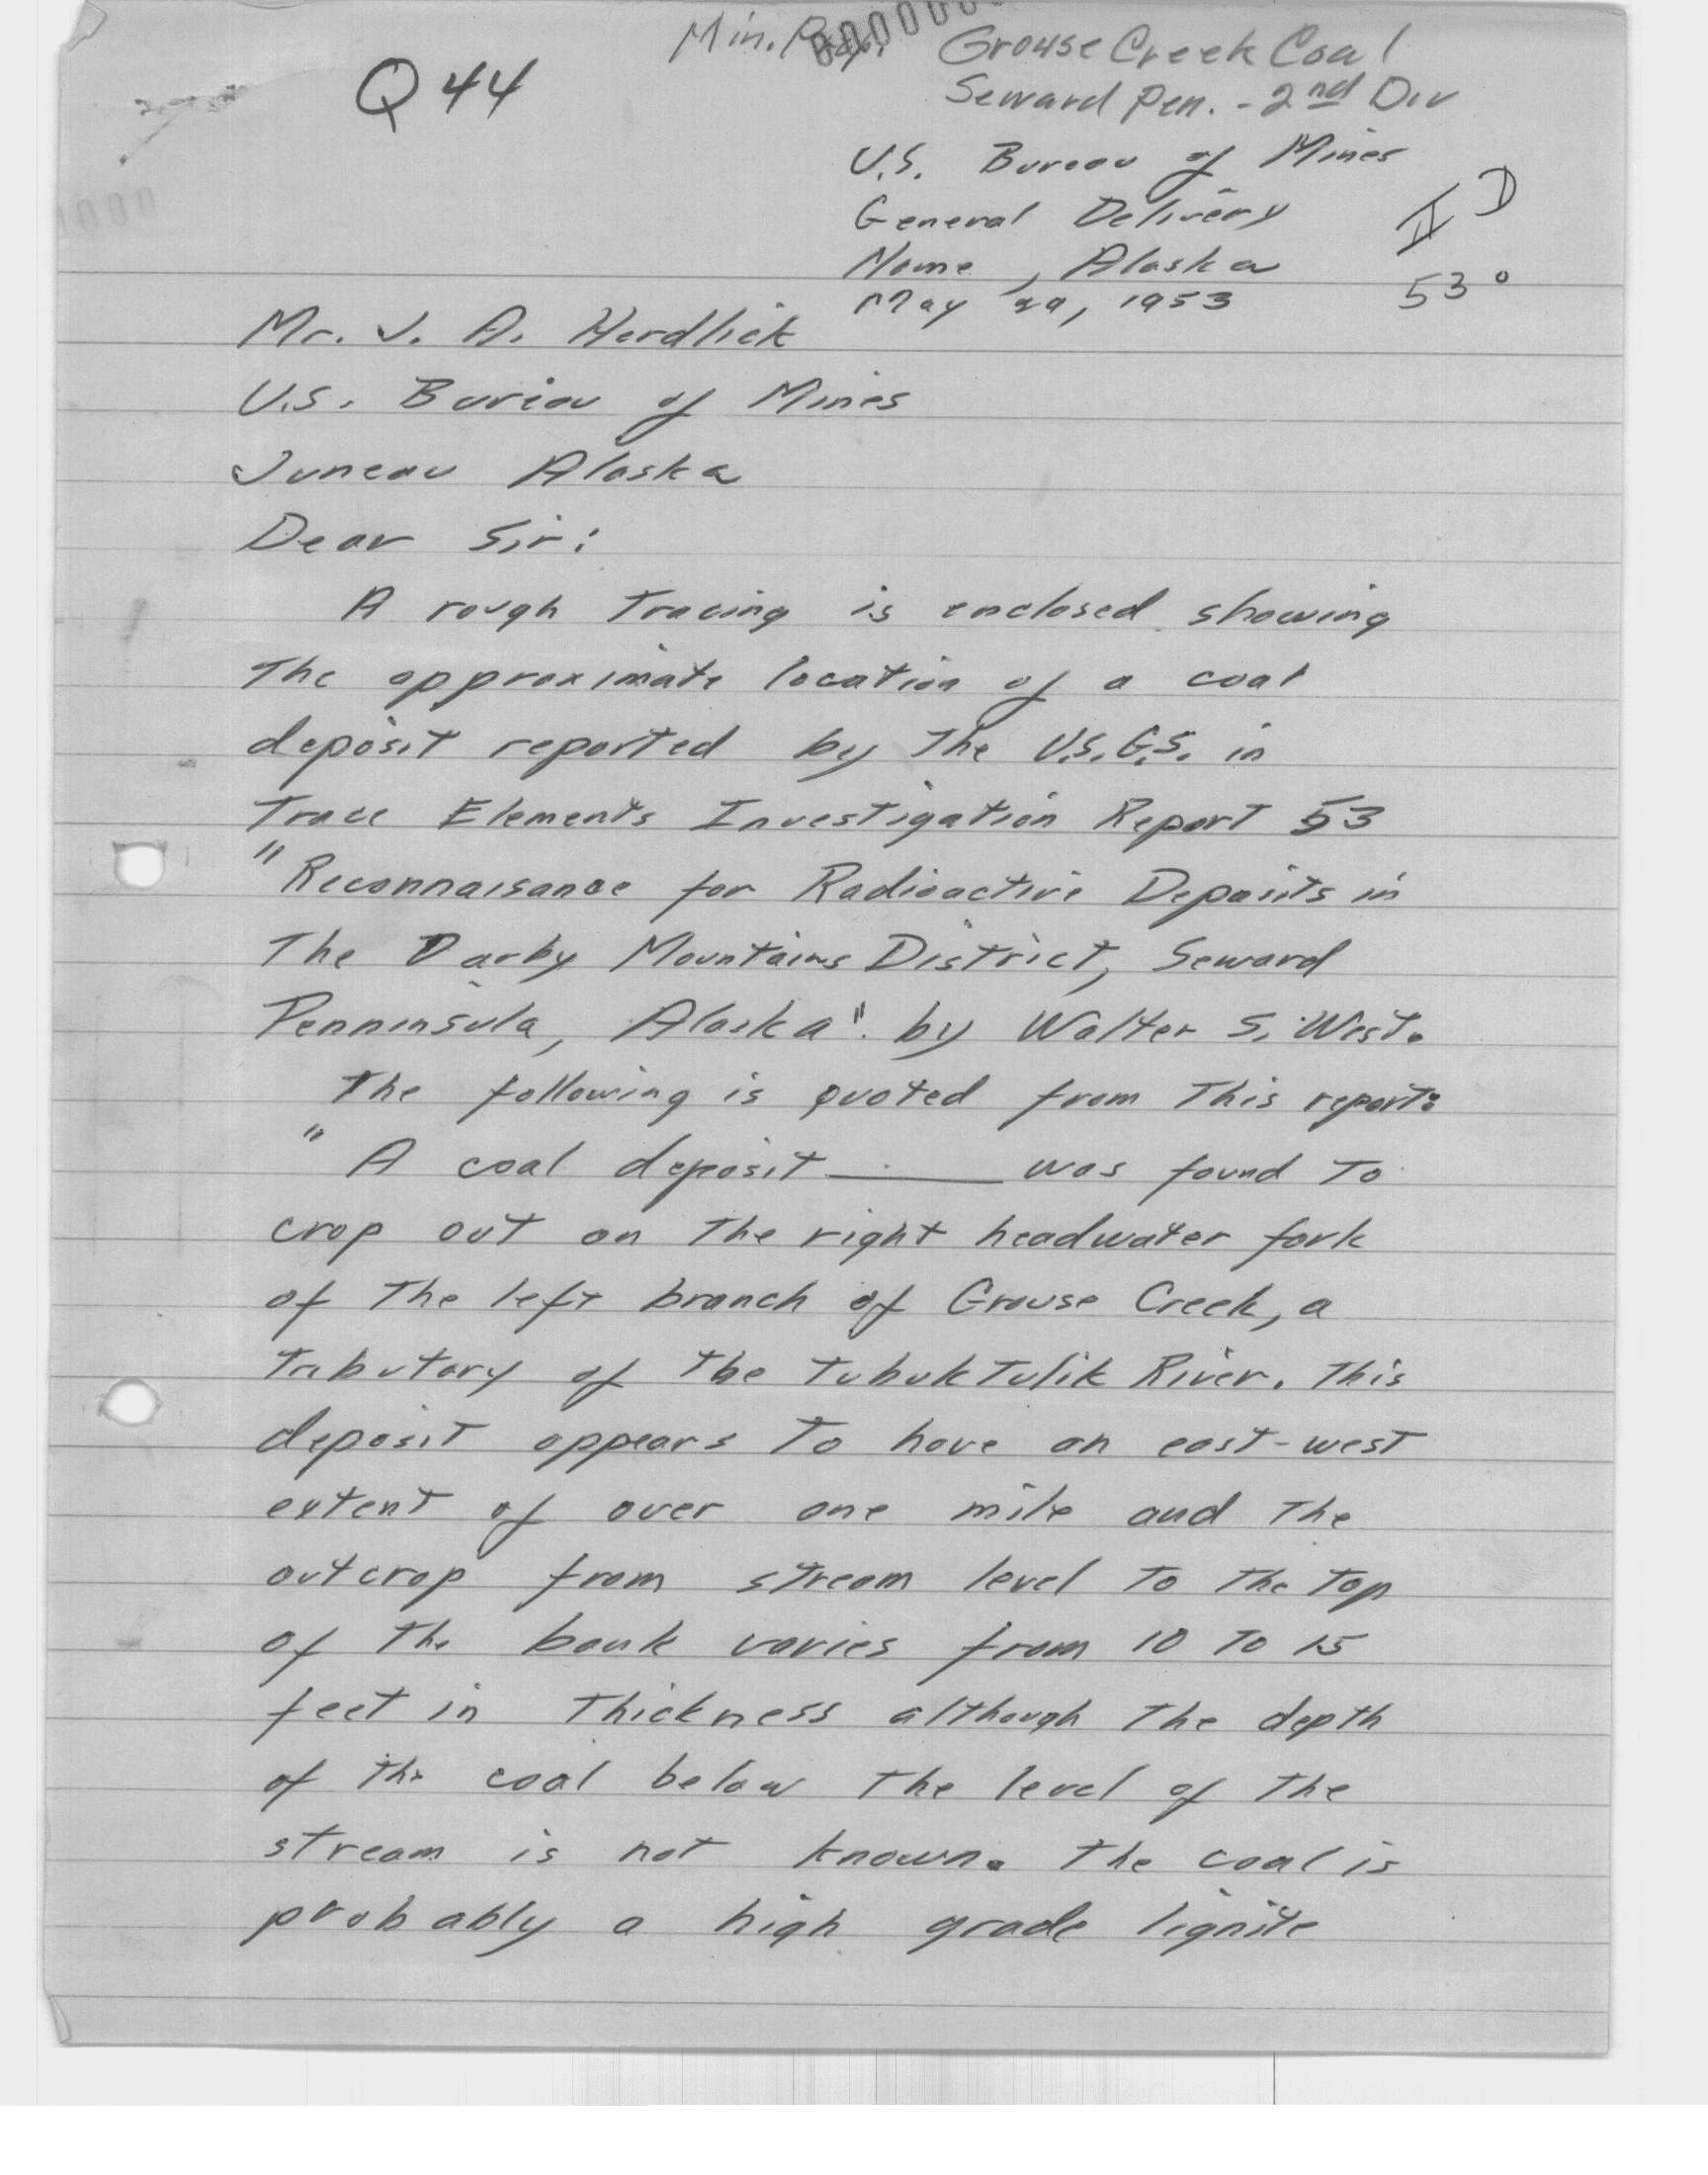 Min. Rep. Grouse Creek Coal
Q 44
Seward Pen. - 2nd Div
U.S. Bureau of Mines
General Delivery
II D
Nome, Alaska
53°
May 29, 1953
Mr. J. A. Herdlick
U.S. Bureau of Mines
Juneau Alaska
Dear Sir:
A rough Tracing is enclosed showing
The approximate location of a coal
deposit reported by The U.S.G.S. in
Trace Elements Investigation Report 53
"Reconnaisance for Radioactive Deposits in
The Darby Mountains District, Seward
Penninsula, Alaska". by Walter S. West.
The following is quoted from This report:
"A coal deposit ______ was found To
crop out on The right headwater fork
of The left branch of Grouse Creek, a
Tributary of The Tubuktulik River. This
deposit appears To have an east-west
extent of over one mile and The
outcrop from stream level To The Top
of The bank varies from 10 To 15
feet in Thickness although The depth
of The coal below The level of The
stream is not known. The coal is
probably a high grade lignite